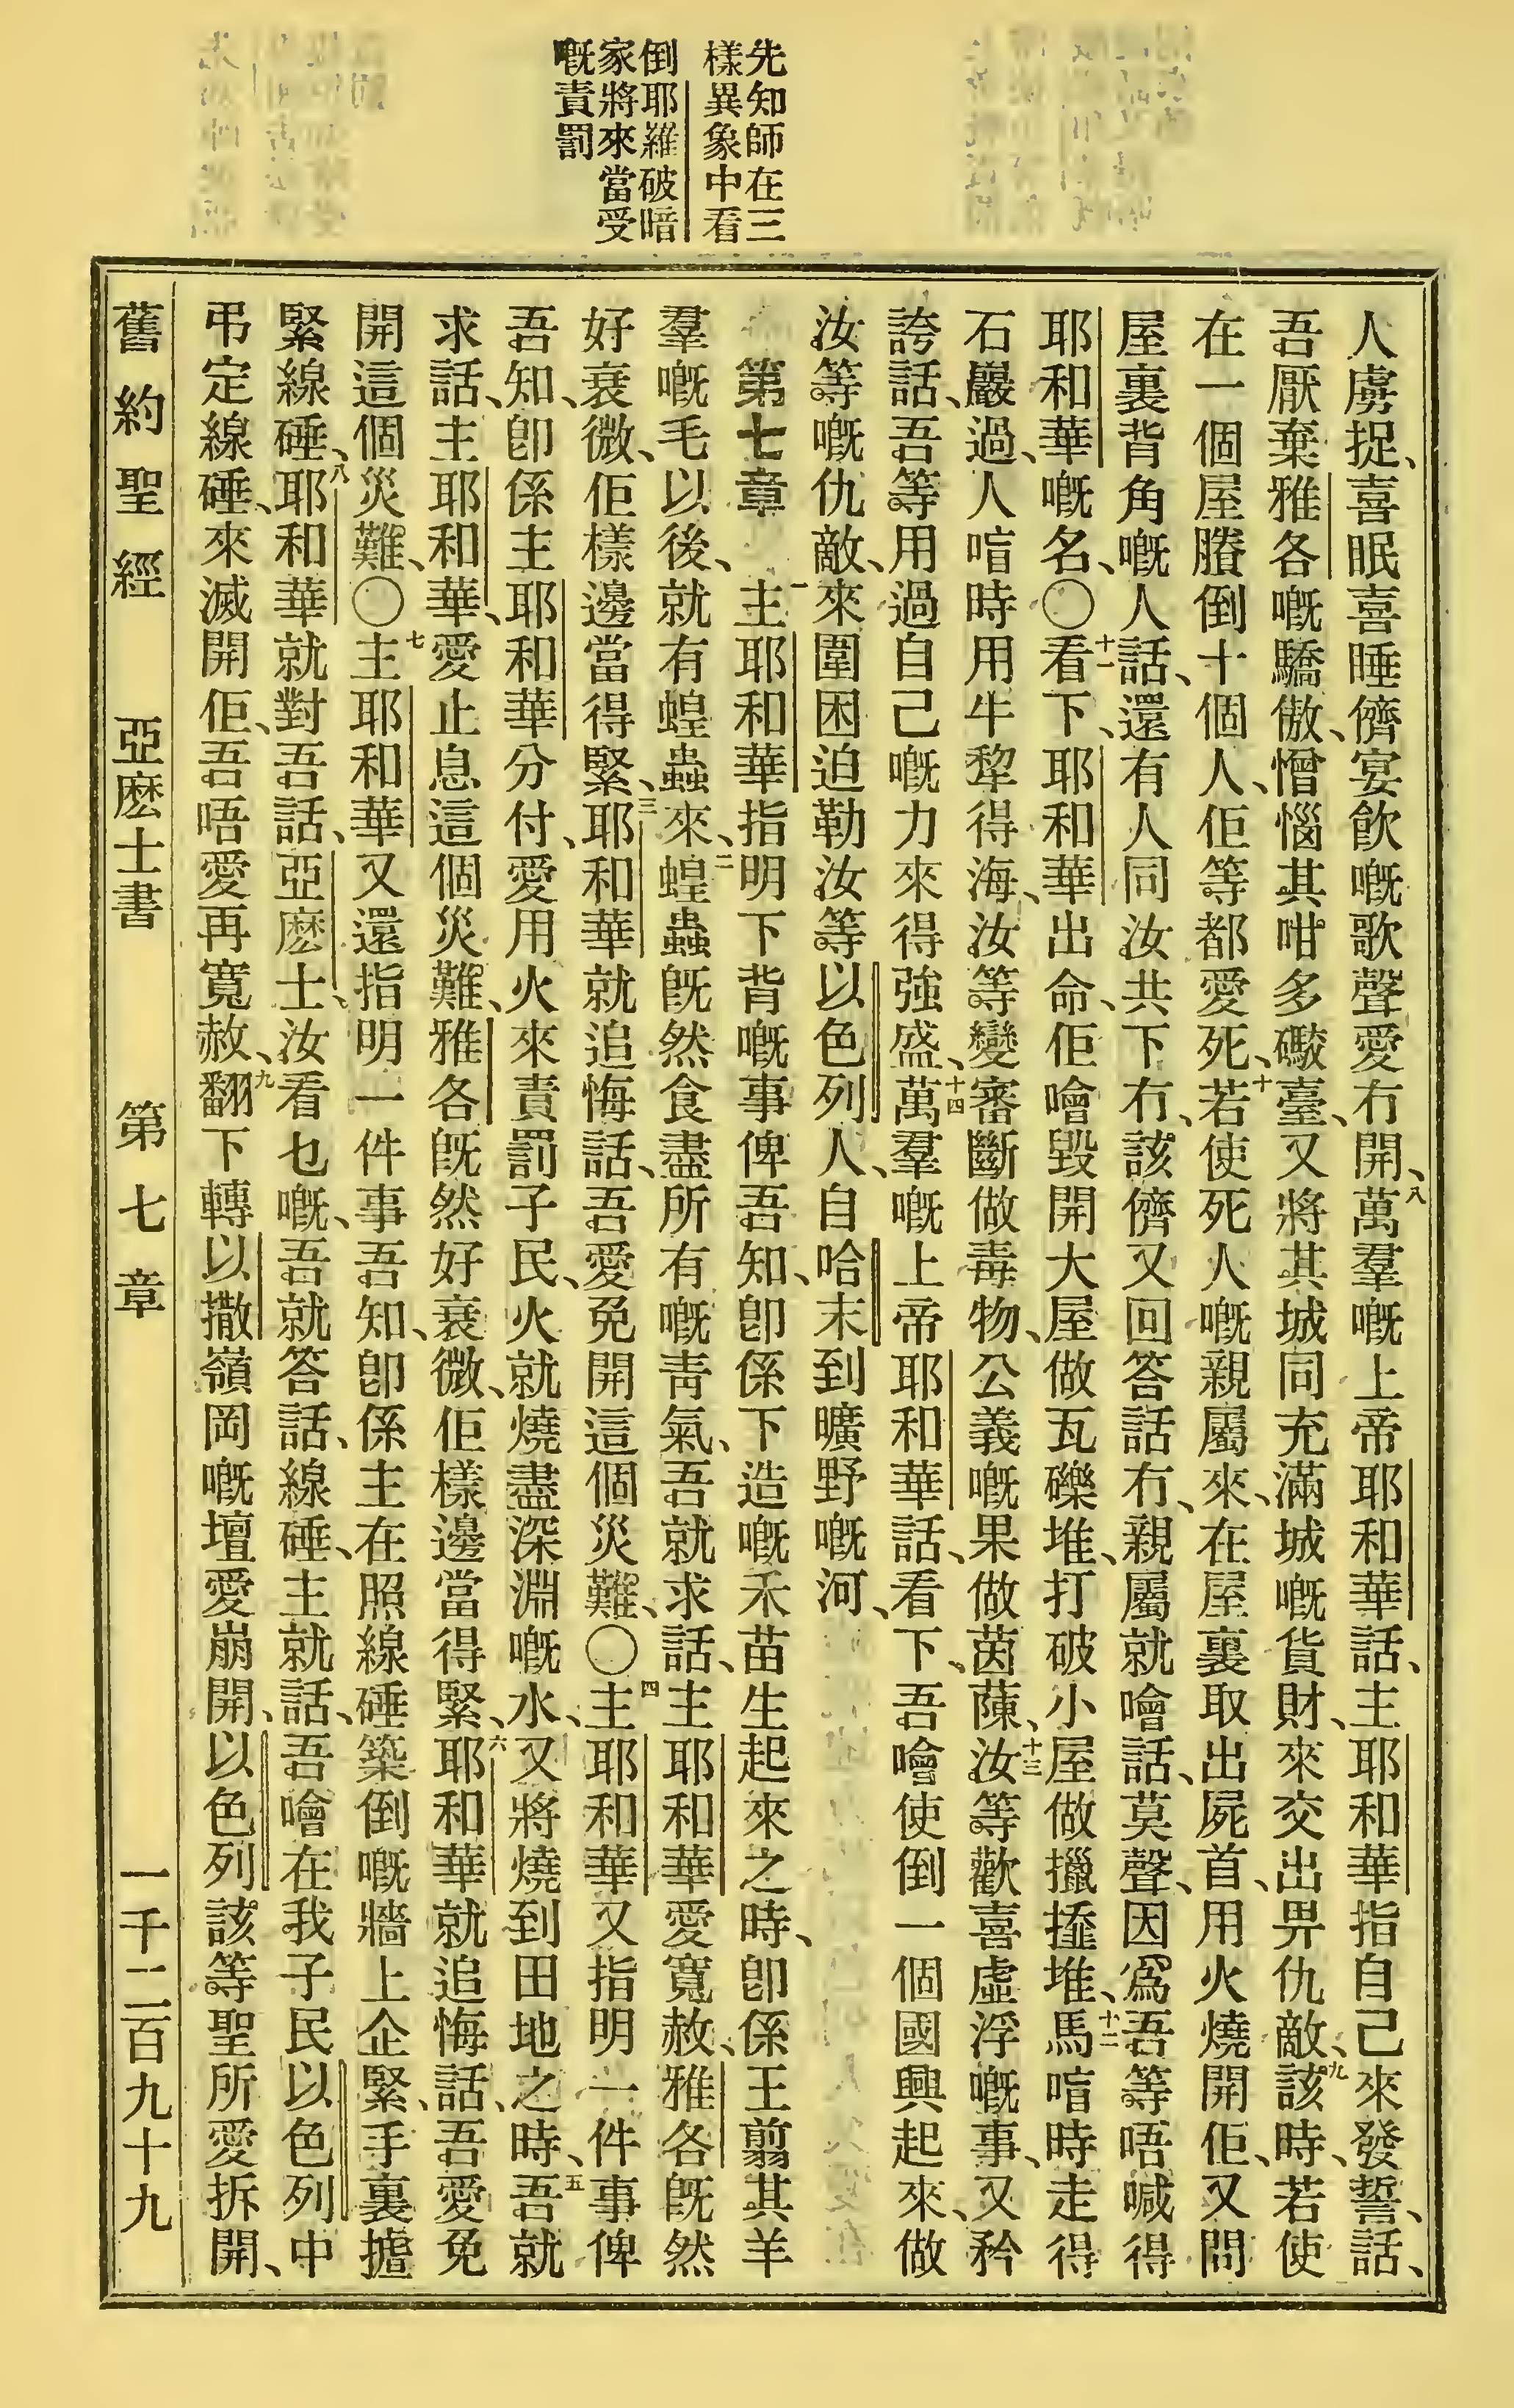 先知師在三
樣異象中看
倒耶羅破暗
家將來當受
嘅責罰
人虜捉、喜眠喜睡儕宴飲嘅歌聲愛冇開、八萬羣嘅上帝耶和華話、主耶和華指自己來發誓、話、
吾厭棄雅各嘅驕傲、憎惱其咁多礮臺、又將其城同充滿城嘅貨財、來交出畀仇敵、九該時、若使
在一個屋賸倒十個人、佢等都愛死、十若使死人嘅親屬來、在屋裏取出屍首、用火燒開佢、又問
屋裏背角嘅人話、還有人同汝共下冇、該儕又回答話冇、親屬就噲話、莫聲、因爲吾等唔喊得
耶和華嘅名、〇十一看下、耶和華出命、佢噲毀開大屋做瓦礫堆、打破小屋做擸𢶍堆、十二馬啀時走得
石巖過、人啀時用牛犂得海、汝等變審斷做毒物、公義嘅果做茵蔯、十三汝等歡喜虛浮嘅事、又矜
誇話、吾等用過自己嘅力來得強盛、十四萬羣嘅上帝耶和華話、看下、吾噲使倒一個國興起來、做
汝等嘅仇敵、來圍困迫勒汝等以色列人、自哈末到曠野嘅河、
第七章　一主耶和華指明下背嘅事俾吾知、卽係下造嘅禾苗生起來之時、卽係王翦其羊
羣嘅毛以後、就有蝗蟲來、二蝗蟲旣然食盡所有嘅靑氣、吾就求話、主耶和華愛寬赦、雅各旣然
好衰微、佢樣邊當得緊、三耶和華就追悔話、吾愛免開這個災難、〇四主耶和華又指明一件事俾
吾知、卽係主耶和華分付、愛用火來責罰子民、火就燒盡深淵嘅水、又將燒到田地之時、五吾就
求話、主耶和華、愛止息這個災難、雅各旣然好衰微、佢樣邊當得緊、六耶和華就追悔話、吾愛免
開這個災難、〇七主耶和華又還指明一件事吾知、卽係主在照線硾築倒嘅牆上企緊、手裏揸
緊線硾、八耶和華就對吾話、亞麽士、汝看乜嘅、吾就答話、線硾、主就話、吾噲在我子民以色列中
弔定線硾、來滅開佢、吾唔愛再寬赦、九翻下轉以撒嶺岡嘅壇愛崩開、以色列該等聖所愛拆開、
舊約聖經　亞麽士書　第七章　一千二百九十九